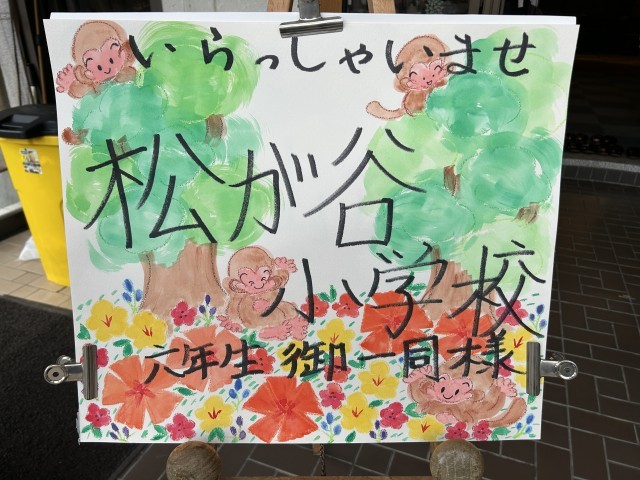 いらっしゃいませ
松が谷
小学校
六年生 御一同様